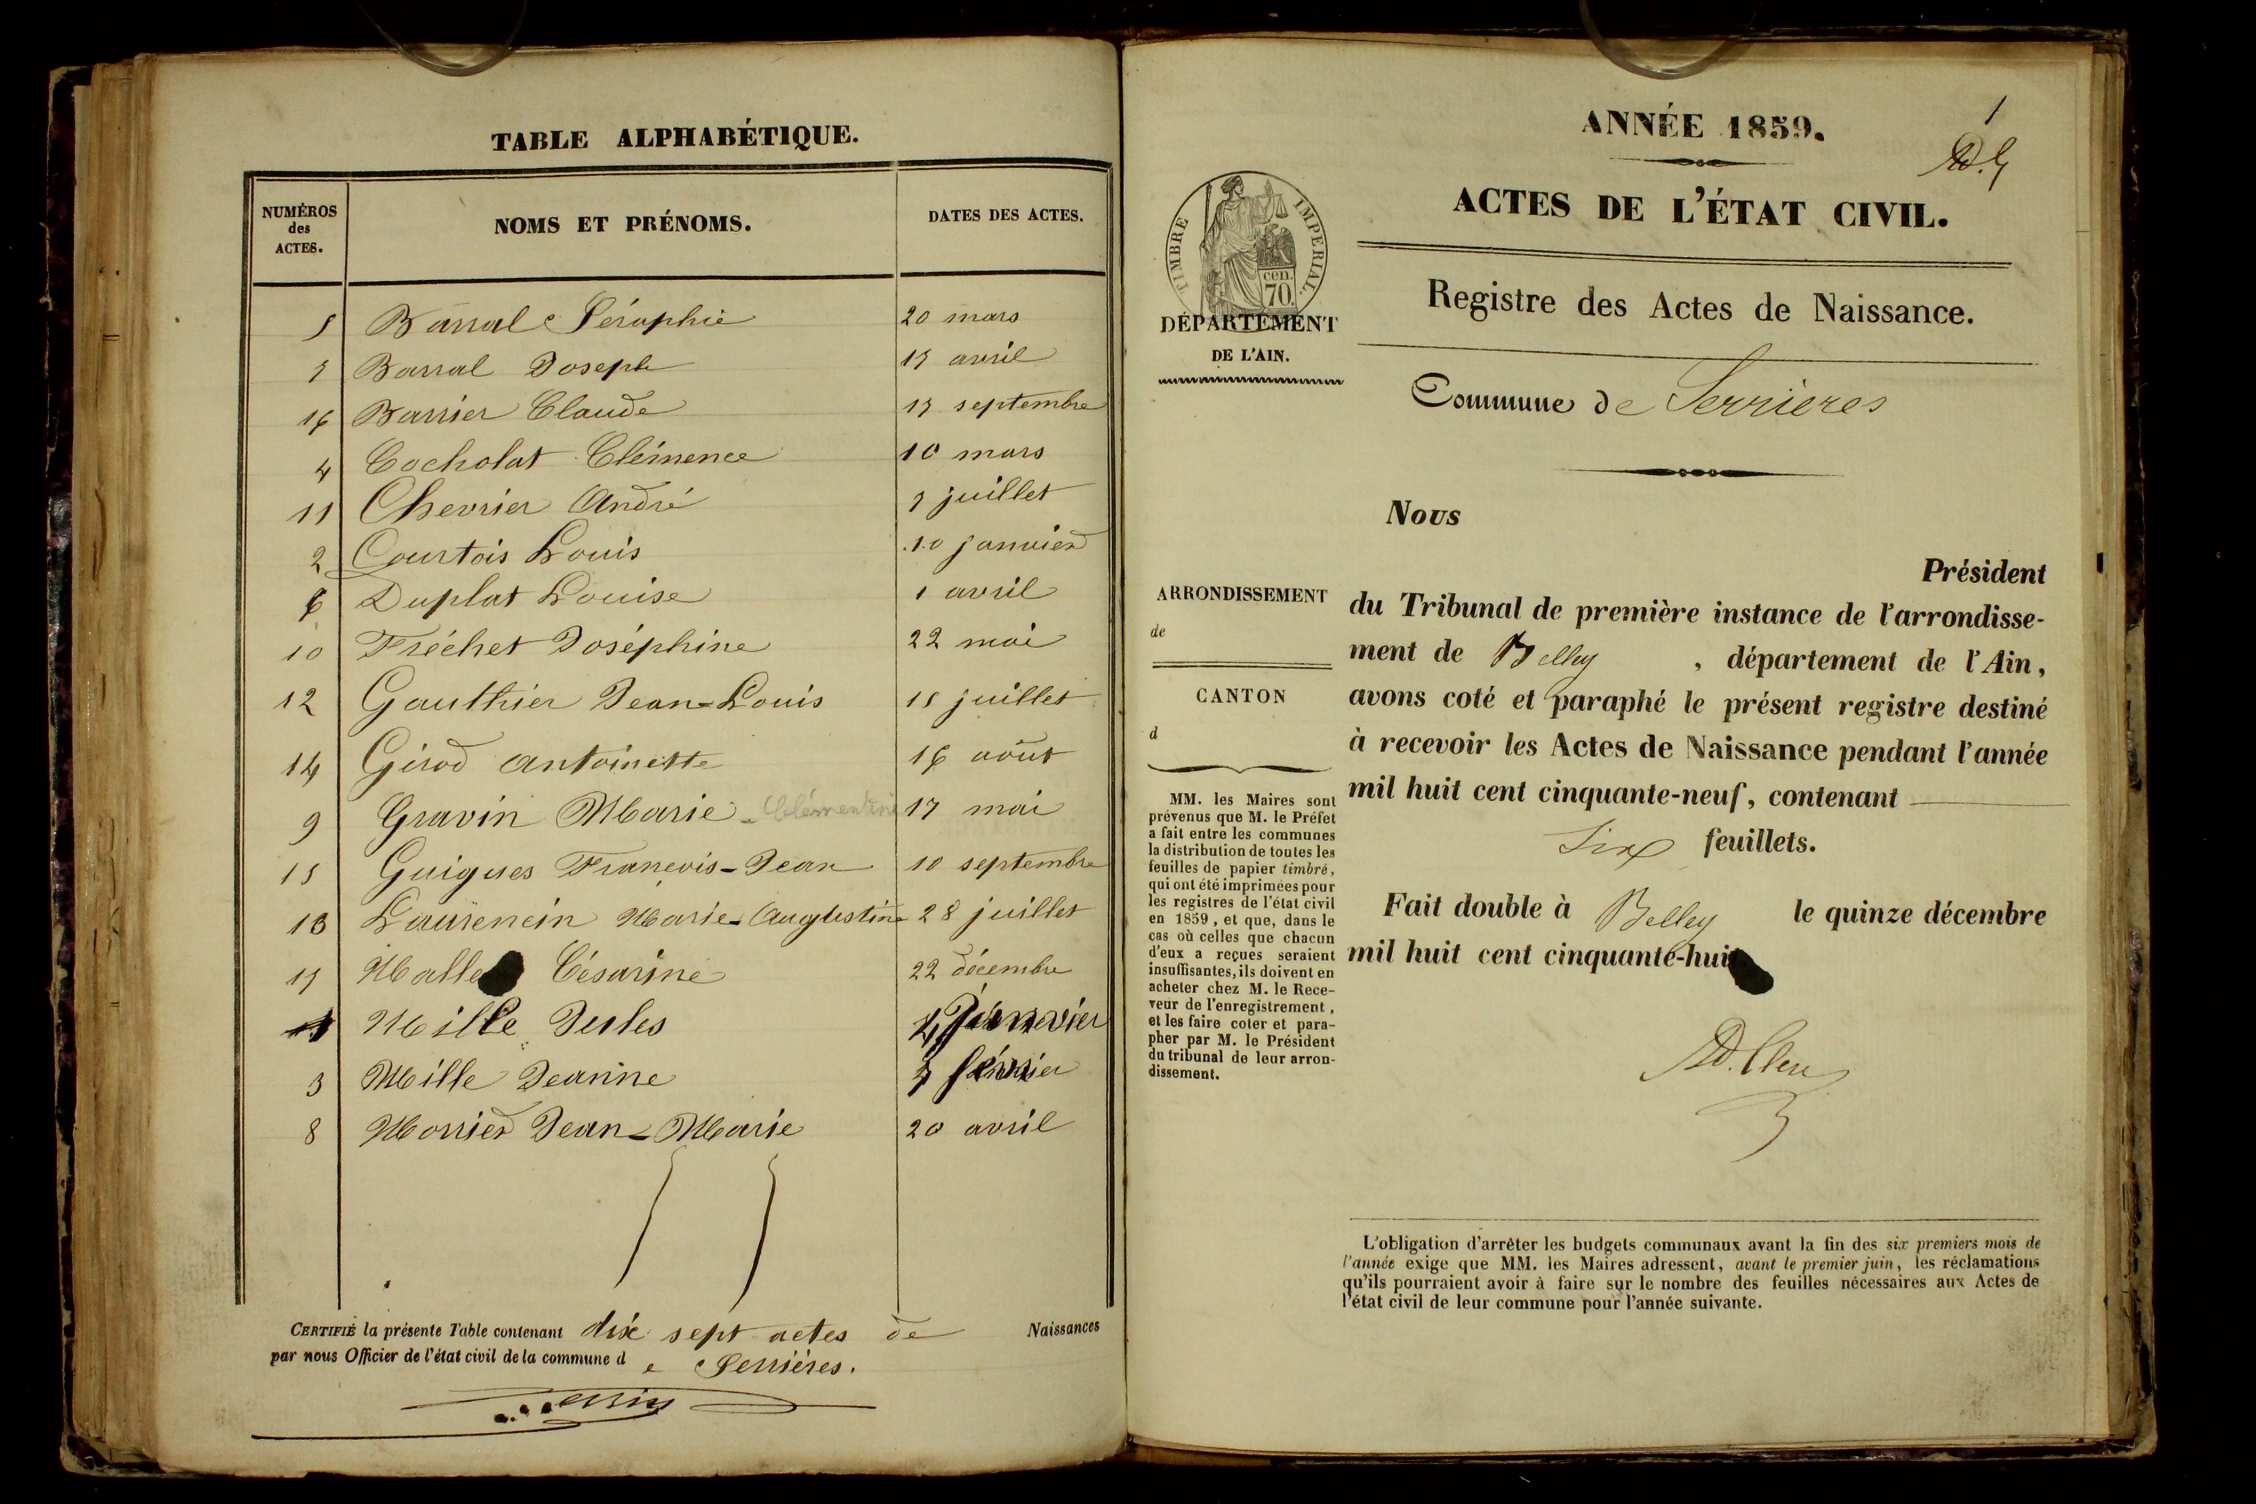 TABLE ALPHABÉTIQUE.
NUMÉROS des ACTES. NOMS ET PRÉNOMS. DATES DES ACTES.
5 Barral Séraphie 20 mars
7 Barral Joseph 17 avril
16 Barrier Claude 17 septembre
4 Cocholat Clémence 10 mars
11 Chevrier André 7 juillet
2 Courtois Louis 10 janvier
6 Duplat Louise 1 avril
10 Fréchet Joséphine 22 mai
12 Gauthier Jean-Louis 15 juillet
14 Girod Antoinette 16 août
9 Gravin Marie-Clémentine 17 mai
15 Guigues François-Jean 10 septembre
13 Laurencin Marie-Augustine 28 juillet
17 Césarine 22 décembre
Mille Jules 4 Janvier
3 Mille Jeanine février
8 Morrier Jean-Marie 20 avril
CERTIFIÉ la présente Table contenant dix sept actes de Naissances
par nous Officier de l'état civil de la commune de Serrières.
ANNÉE 1859.
1
ACTES DE L'ÉTAT CIVIL.
Registre des Actes de Naissance.
TIMBRE IMPÉRIAL
70 cen.
DÉPARTEMENT
DE L'AIN.
Commune de Serrières
ARRONDISSEMENT
de
CANTON
d
MM. les Maires sont
prévenus que M. le Préfet
a fait entre les communes
la distribution de toutes les
feuilles de papier timbré,
qui ont été imprimées pour
les registres de l'état civil
en 1859, et que, dans le
cas où celles que chacun
d'eux a reçues seraient
insuffisantes, ils doivent en
acheter chez M. le Rece-
veur de l'enregistrement,
et les faire coter et para-
pher par M. le Président
du tribunal de leur arron-
dissement.
Nous
Président
du Tribunal de première instance de l'arrondisse-
ment de Belley, département de l'Ain,
avons coté et paraphé le présent registre destiné
à recevoir les Actes de Naissance pendant l'année
mil huit cent cinquante-neuf, contenant
Six feuillets.
Fait double à Belley le quinze décembre
mil huit cent cinquante-huit
L'obligation d'arrêter les budgets communaux avant la fin des six premiers mois de
l'année exige que MM. les Maires adressent, avant le premier juin, les réclamations
qu'ils pourraient avoir à faire sur le nombre des feuilles nécessaires aux Actes de
l'état civil de leur commune pour l'année suivante.